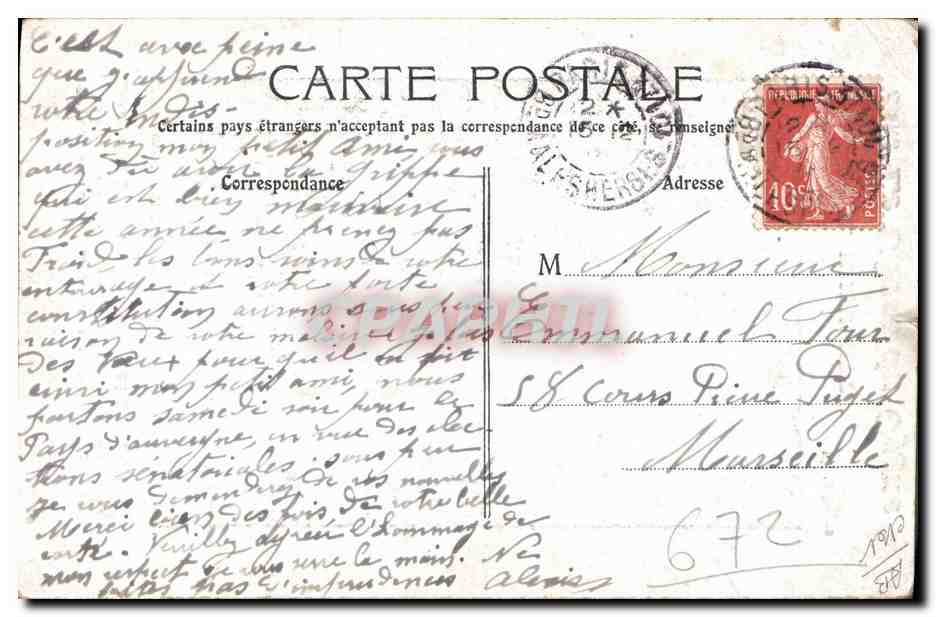 C'est avec peine
que j'apprend
votre Indis-
position mon petit Ami vous
avez dû avoir la Grippe
qui est bien mauvaise
cette année ne prenez pas
Froid, les bons soins de votre
entourage et votre forte
constitution aurons sous peu
raison de votre malaise je fais
des vœux pour qu'il en soit
ainsi mon petit ami, nous
partons samedi soir pour le
Pays d'auvergne, en vue des elec-
tions sénatoriales. sous peu
je vous demanderez de vos nouvelles
Merci bien des fois de votre belle
carte. Veuillez agréer l'hommage de
mon respect je vous serre la main. Ne
faites pas d'imprudences Alexis
CARTE POSTALE
Certains pays étrangers n'acceptant pas la correspondance de ce côté, se renseigner
Correspondance
Adresse
REPUBLIQUE FRANÇAISE
10c
POSTES
M Monsieur
Emmanuel Four
58 Cours Pierre Puget
Marseille
CPARAMA
672